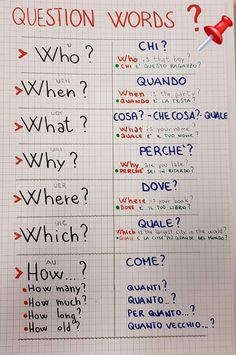 QUESTION WORDS ?
U
Who ?
CHI?
Who is that boy?
CHI È QUESTO RAGAZZO?
UEN
When ?
QUANDO
When is the party?
QUANDO È LA FESTA?
UOT
What ?
COSA? - CHE COSA? - QUALE
What is your name?
QUALE È IL TUO NOME?
UAI
Why ?
PERCHE'?
Why are you late?
PERCHE' SEI IN RITARDO?
UER
Where?
DOVE?
Where is your book?
DOVE È IL TUO LIBRO?
UIC
Which?
QUALE?
Which is the largest city in the world?
QUALE È LA CITTA' PIÙ GRANDE DEL MONDO?
AU
How...?
COME?
How many?
QUANTI?
How much?
QUANTO..?
How long?
PER QUANTO...?
How old?
QUANTO VECCHIO...?